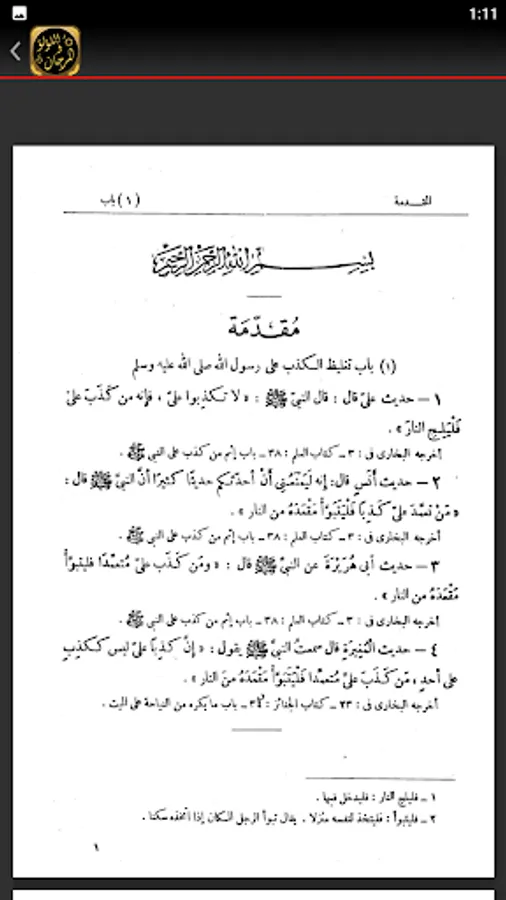 1:11
اللؤلؤ
و
المرجان
المقدمة (١) باب
بسم الله الرحمن الرحيم
مُقدّمة
(١) باب تغليظ الكذب على رسول الله صلى الله عليه وسلم
١ – حديث عليّ قال : قال النبيّ ﷺ : « لا تكذِبوا عليّ ، فإنه من كَذَبَ عليّ
فَلْيَلِجِ النارَ » .
أخرجه البخارى فى : ٣ ـ كتاب العلم : ٣٨ ـ باب إثم من كذب على النبى ﷺ .
٢ – حديث أَنَسٍ قال: إنه لَيَمْنَعُنِي أنْ أُحدّثَكم حديثًا كثيرًا أنّ النبيّ ﷺ قال :
« مَنْ تعمَّد عليّ كَذِبًا فَلْيَتَبَوَّأْ مَقْعَدَهُ من النار » .
أخرجه البخارى فى : ٣ ـ كتاب العلم : ٣٨ ـ باب إثم من كذب على النبى ﷺ .
٣ – حديث أبي هُرَيْرَةَ عن النبيّ ﷺ قال : « ومَن كَذَب عليّ مُتعمِّدًا فليتبوّأْ
مَقْعَدَهُ من النار » .
أخرجه البخارى فى : ٣ ـ كتاب العلم : ٣٨ ـ باب إثم من كذب على النبى ﷺ .
٤ – حديث الْمُغِيرَةِ قال سمعتُ النبيّ ﷺ يقول : « إنَّ كَذِبًا عليّ ليس ككَذِبٍ
على أحدٍ ، مَن كَذَبَ عليّ متعمِّدا فَلْيَتَبَوَّأْ مَقْعَدَهُ منَ النار » .
أخرجه البخارى فى : ٢٣ ـ كتاب الجنائز : ٣٤ ـ باب ما يكره من النياحة على الميت .
١ ـ فليلج النار : فليدخل فيها .
٢ ـ فليتبوأ : فليتخذ لنفسه منزلا . يقال تبوأ الرجل المكان إذا اتخذه سكنا .
١